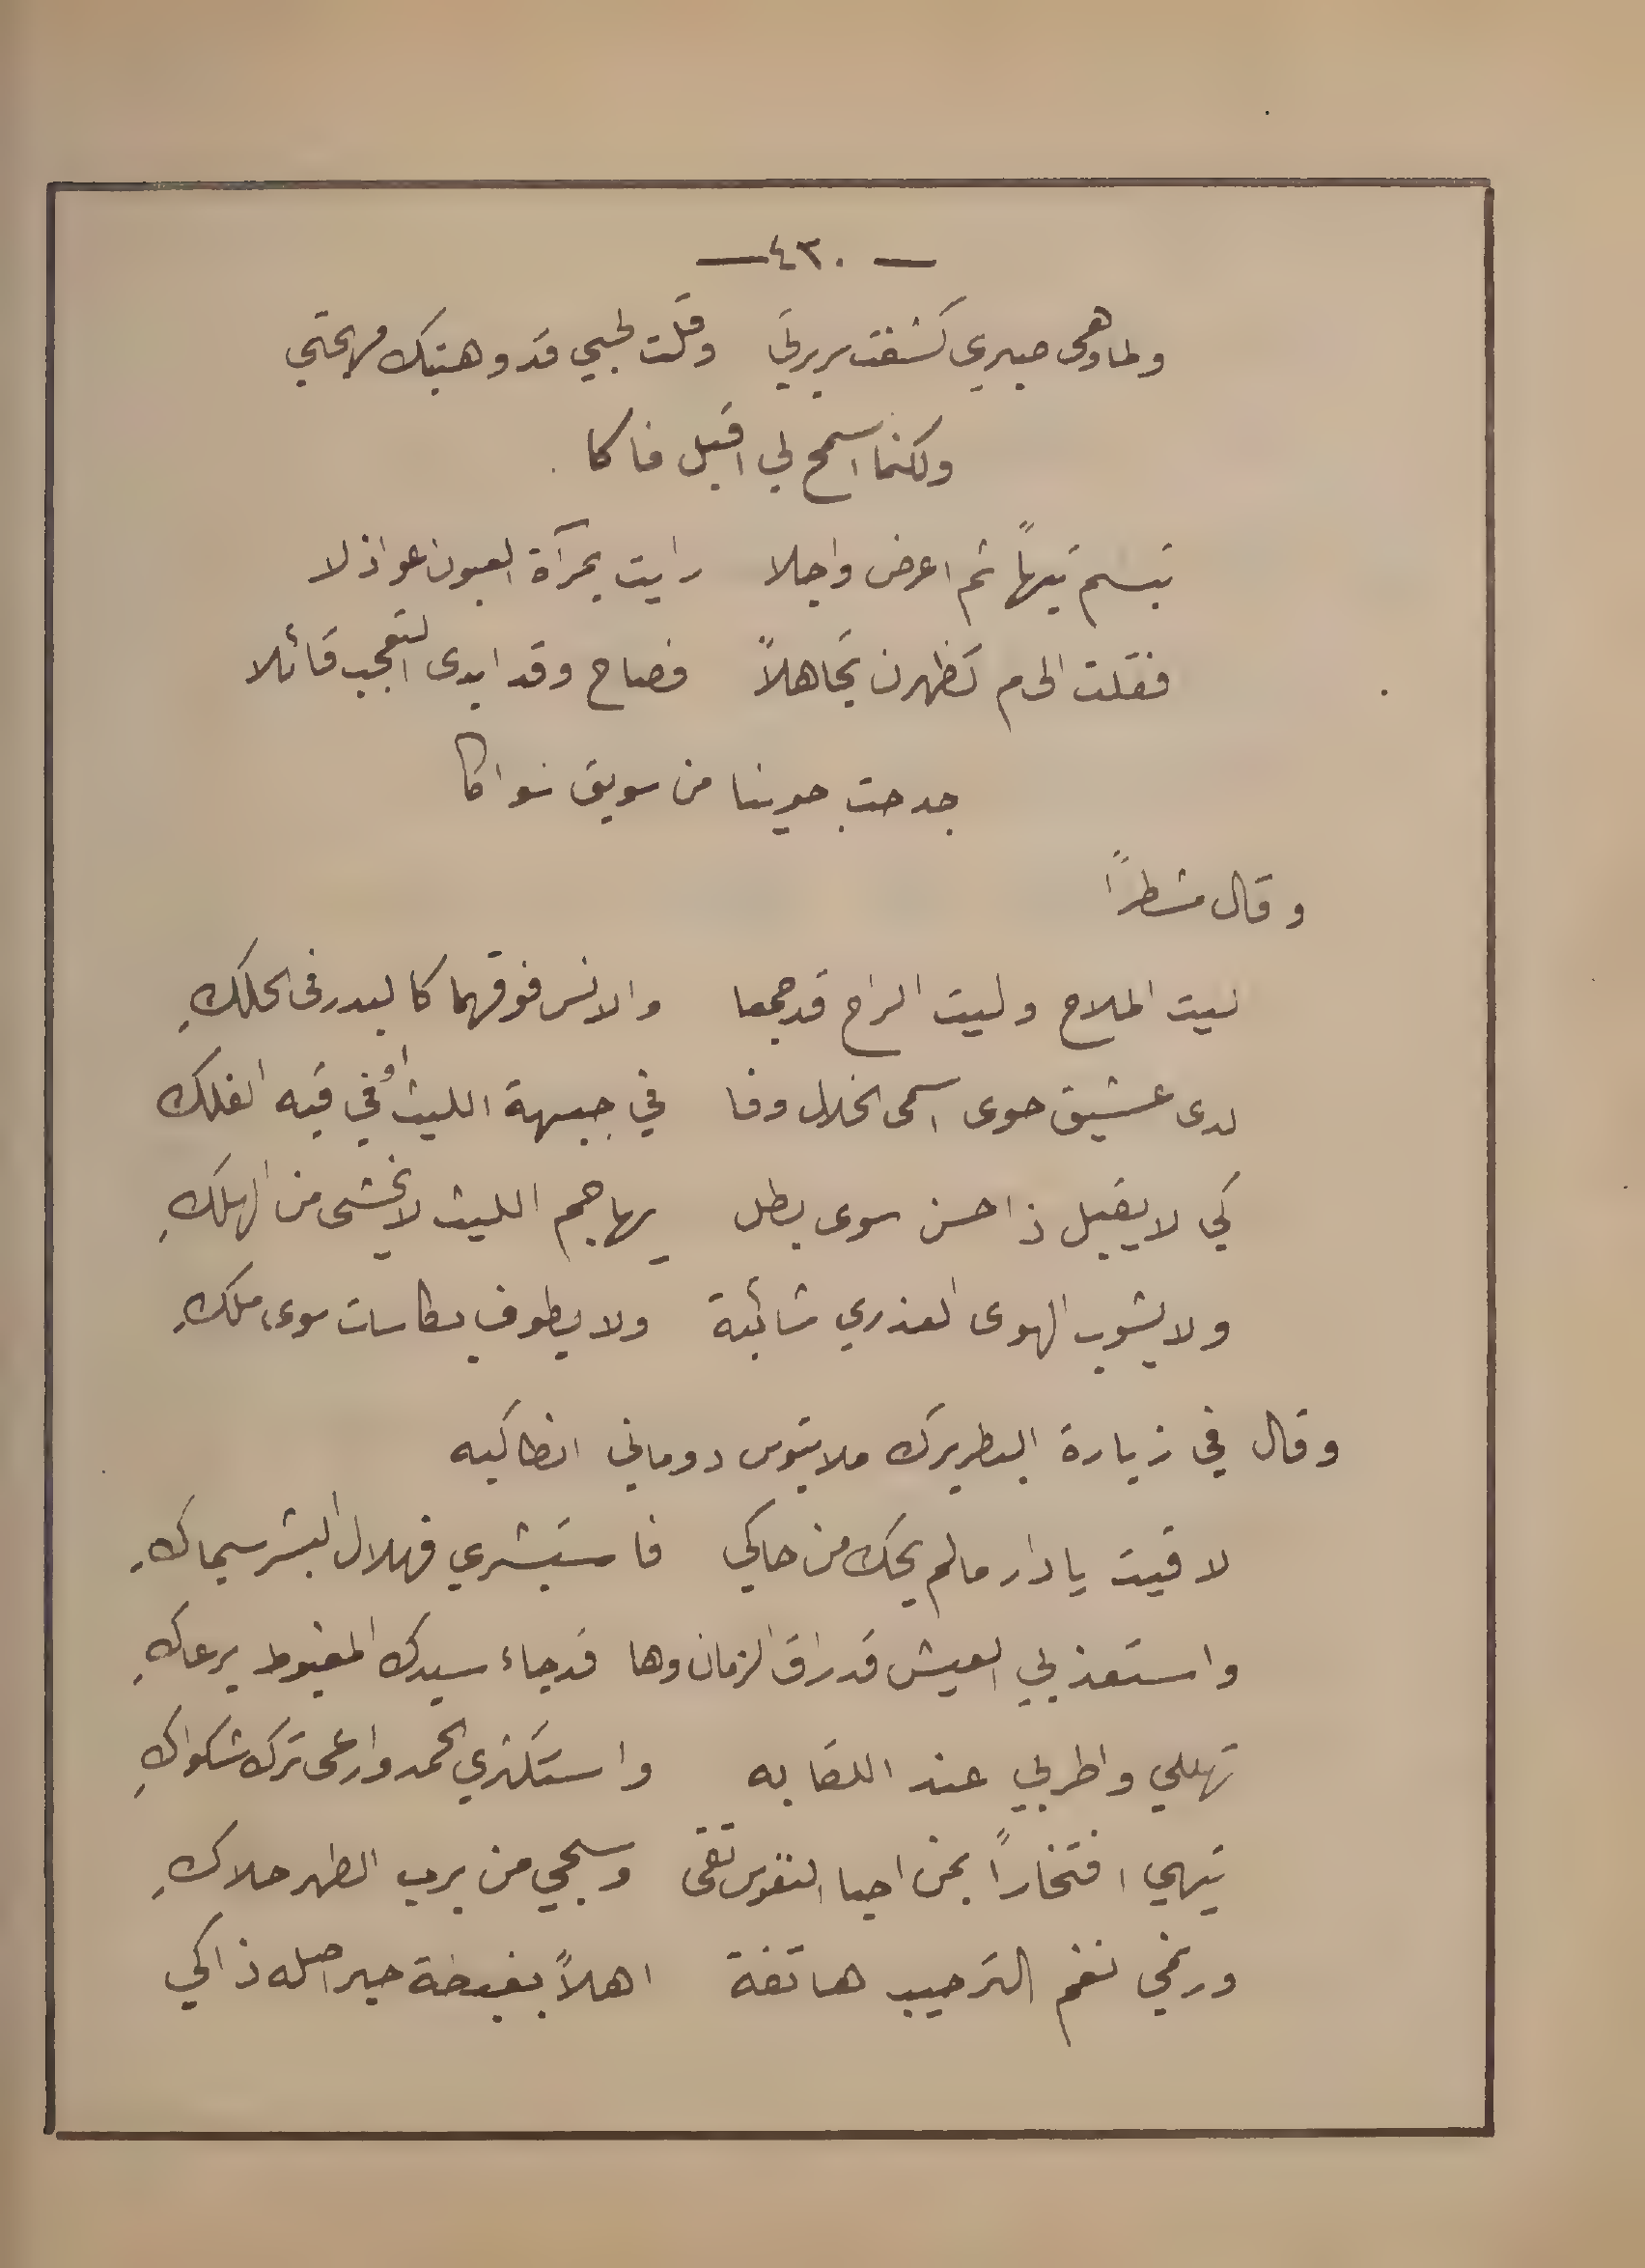 — ٤٣٠ —
ولما وهى صبري كشفت سريرتي وقلت لحبي قد وهبتك مهجتي
ولكنما اسمح لي اقبل فاكا
تبسم تيهاً ثم اعرض واجلا رايت بمرآة العيون عواذلا
فقلت الى م تظهرن تجاهلاً فصاح وقد ابدى التعجب قائلا
جدحت جوينا من سويق سواكا
وقال مشطراً
ليت الملاح وليت الراح قد جمعا والانس فوقهما كالبدر في الحلكِ
لدى عشيق حوى اسمى الخلال وفا في جبهة الليث او في قبه الفلك
كي لا يقبل ذا حسن سوى بطل يهاجم الليث لا يخشى من الهلكِ
ولا يشوب الهوى العذري شائبة ولا يطوف بكاسات سوى ملكِ
وقال في زيارة البطريرك ملاتيوس دوماني انطاكيه
لاقيت يا دار مالم يحك من حاكي فاستبشري فهلال البشر سيماكِ
واستعذبي العيش قد راق الزمان وها قد جاء سيدك المغبوط يرعاكِ
تهللي واطربي عند اللقا به واستكثري الحمد وارعى ترك شكواكِ
تيهي افتخاراً بمن احيا النفوس تقى وسبحي من ببرد الطهر حلاكِ
ورنمي نغم الترحيب هاتفة اهلاً بغبطة حبر اصله ذاكي